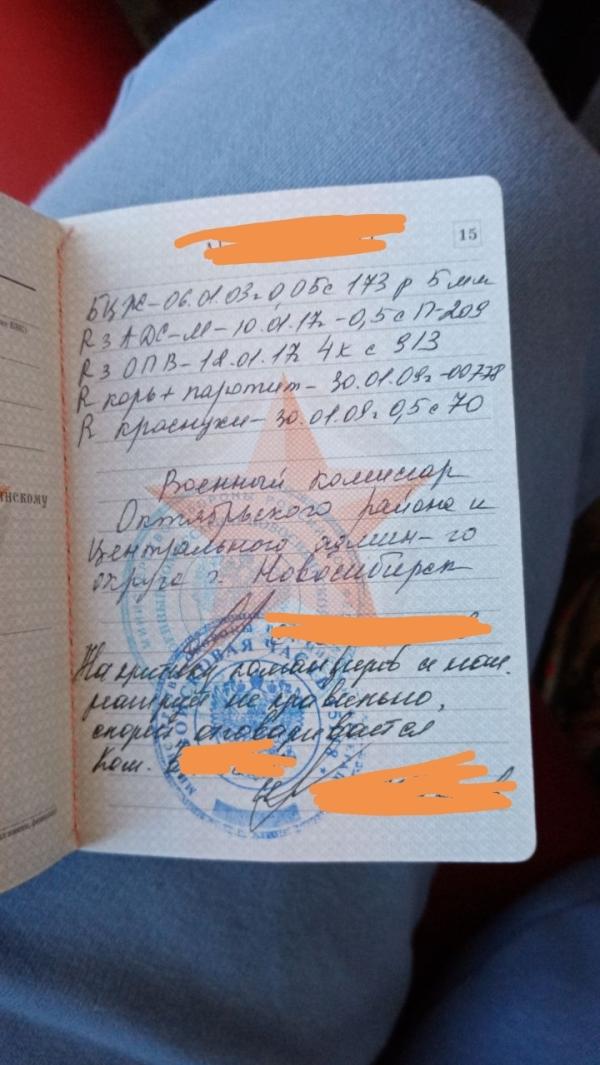 15
БЦЖ-06.01.03г 0,05с 173 р 5мм
R3 АДС-М-10.01.17г-0,5с П-209
R3 ОПВ-18.01.17 4к с 913
R корь+паротит-30.01.09г-00778
R краснухи-30.01.09г 0,5с 70
Военный комиссар
Октябрьского района и
Центрального админ-го
округа г. Новосибирск
На критику командиров и нач.
реагирует не правильно,
спорит отговаривается
Ком.
нскому
ВОЙСКОВАЯ ЧАСТЬ